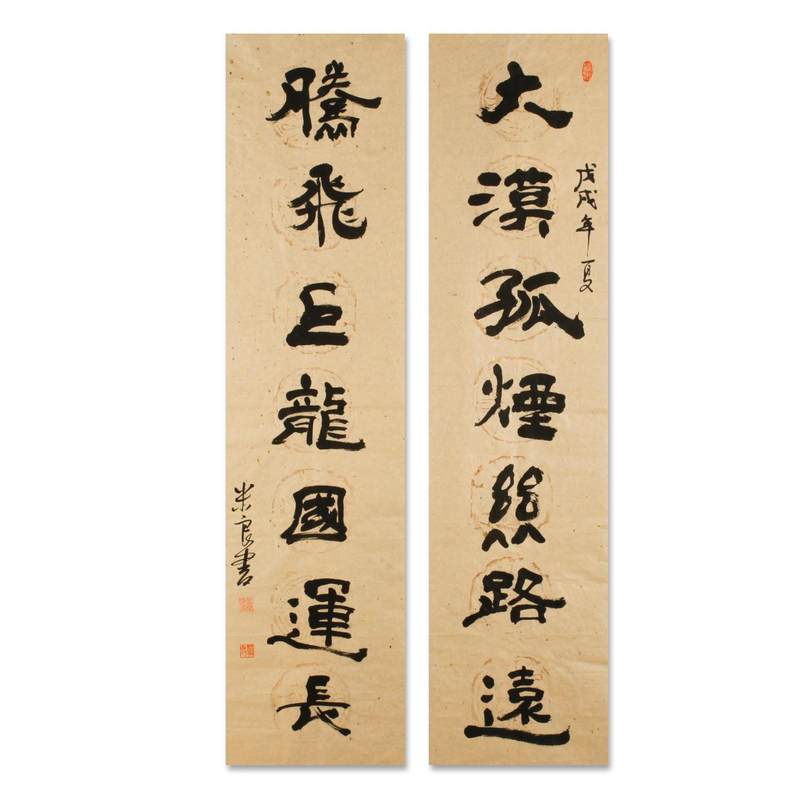 大漠孤煙絲路遠
戊戌年夏
騰飛巨龍國運長
米良書